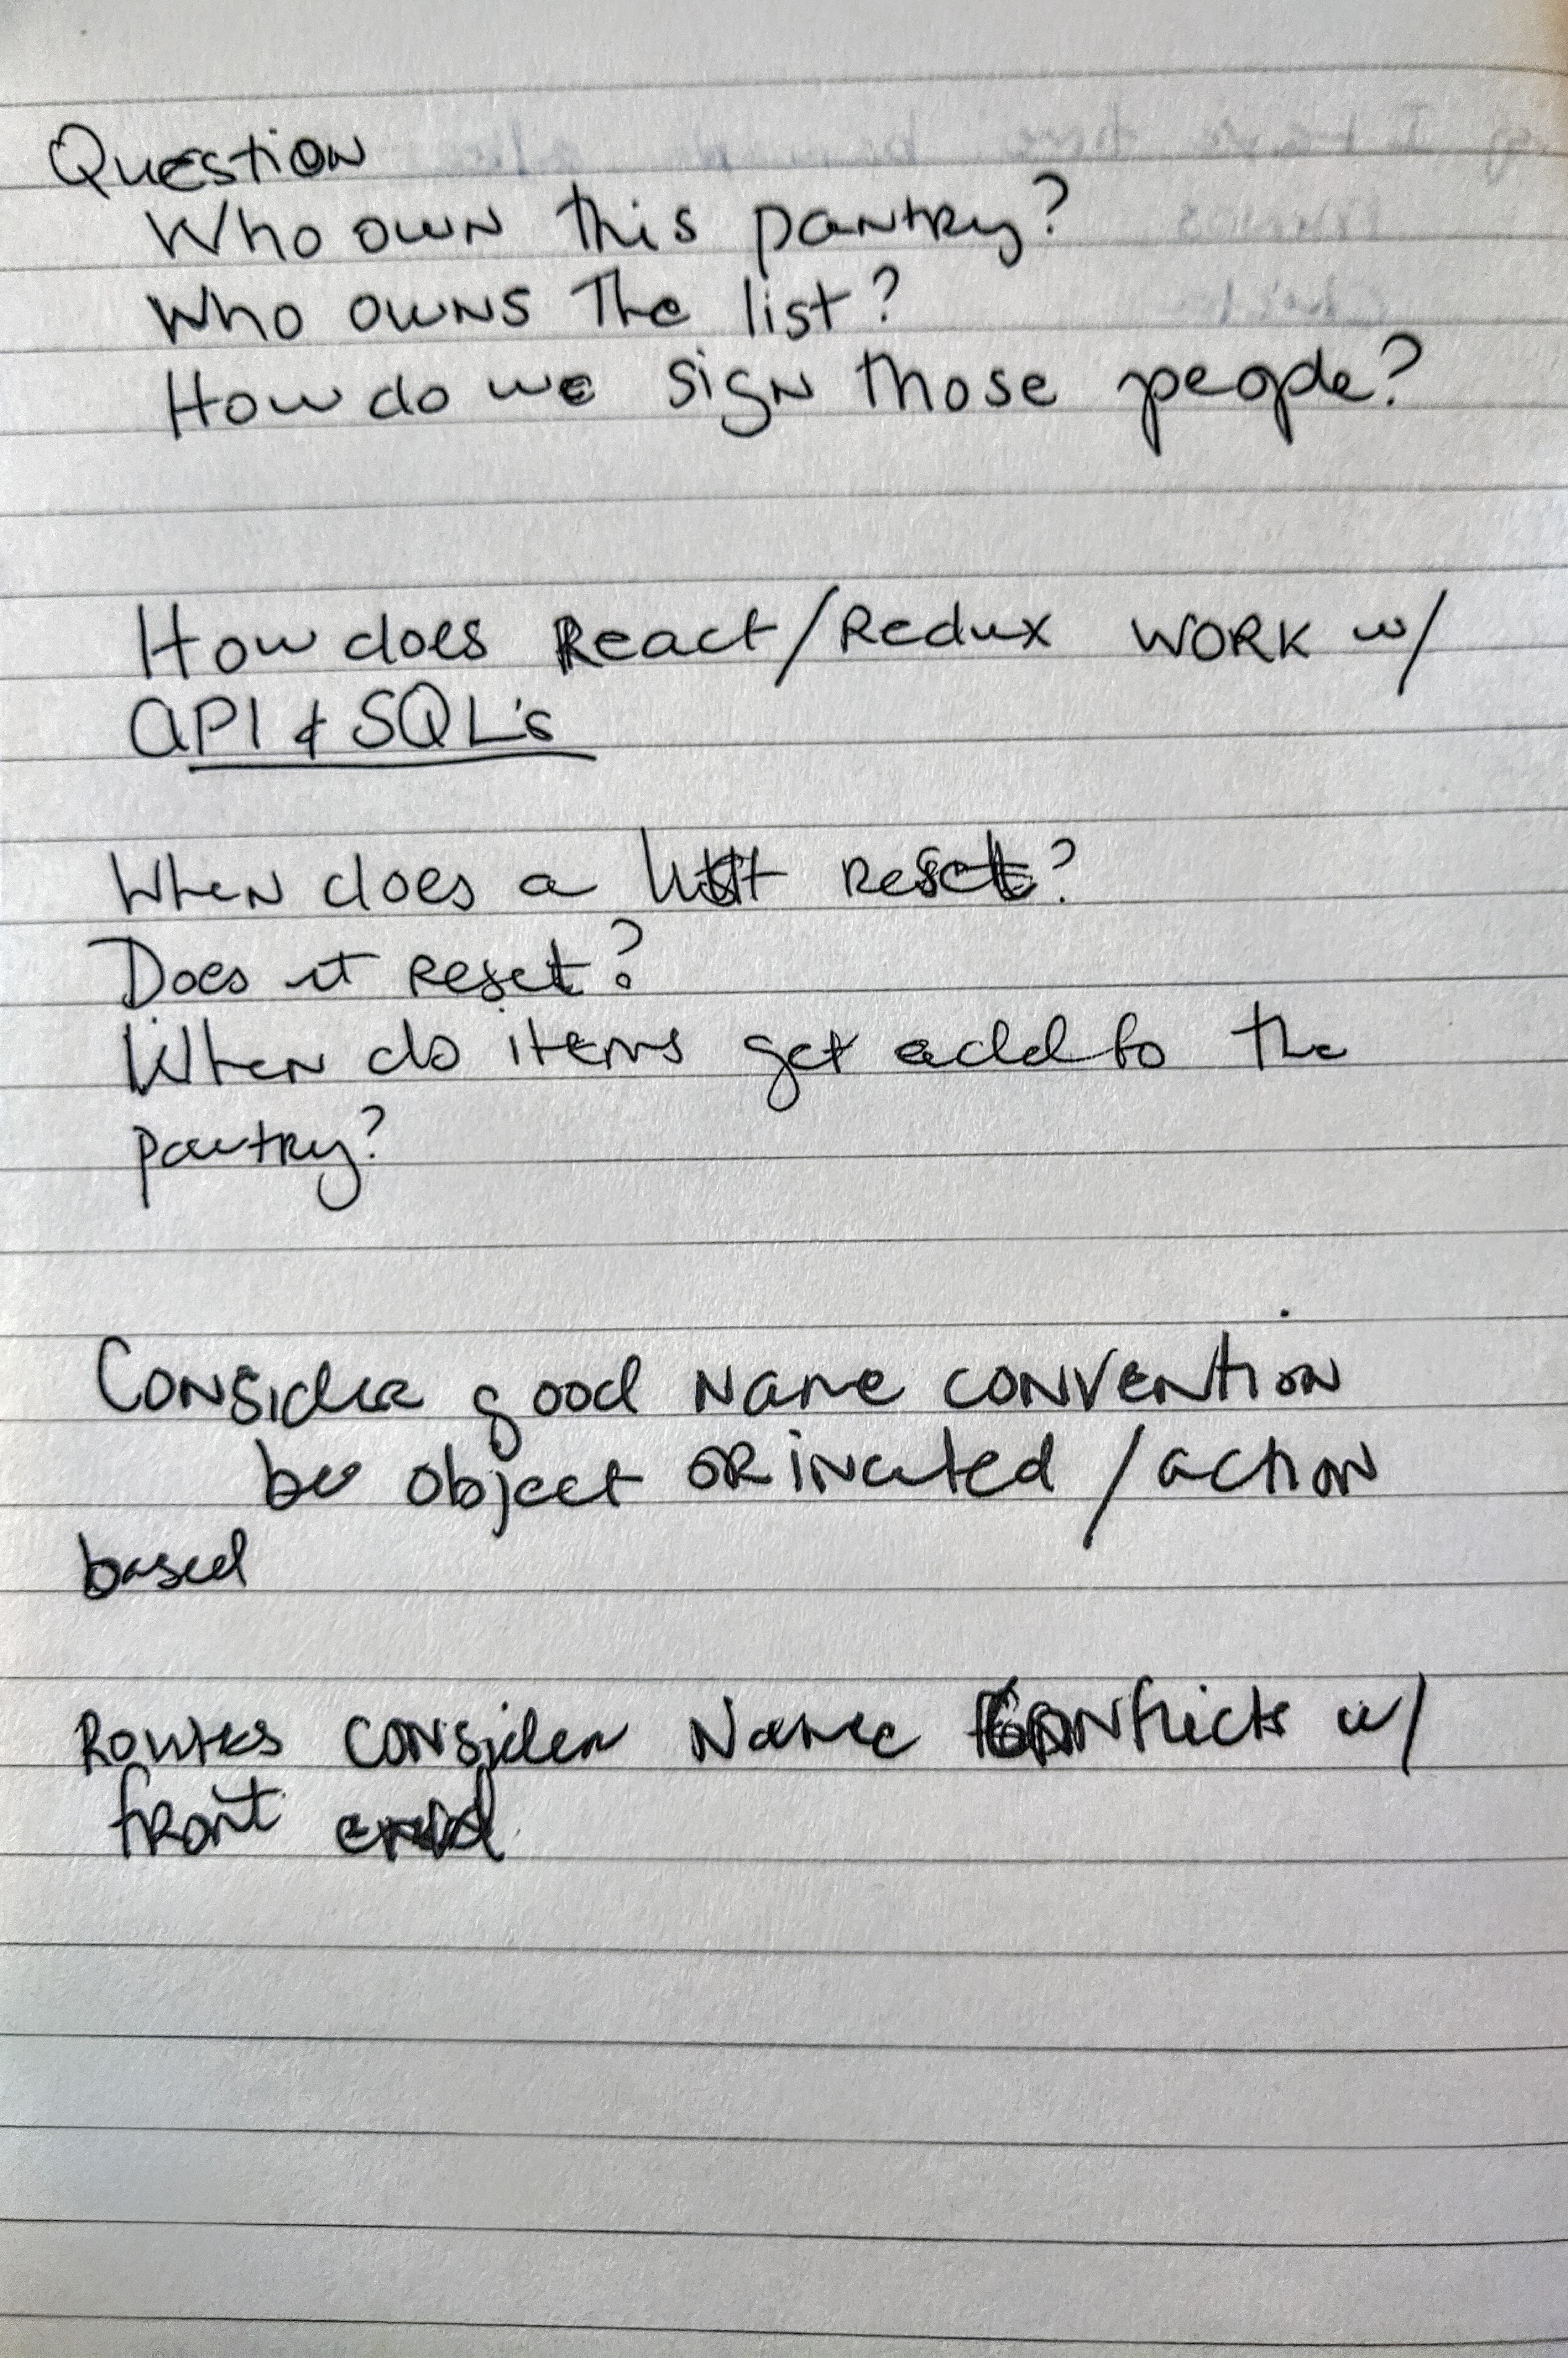 Question
Who own this pantry?
Who owns the list?
How do we sign those people?
How does React/Redux work w/
API & SQL's
When does a list reset?
Does it reset?
When do items get add to the
pantry?
Consider good name convention
be object orinated / action
based
Routes consider Name Conflicts w/
front end